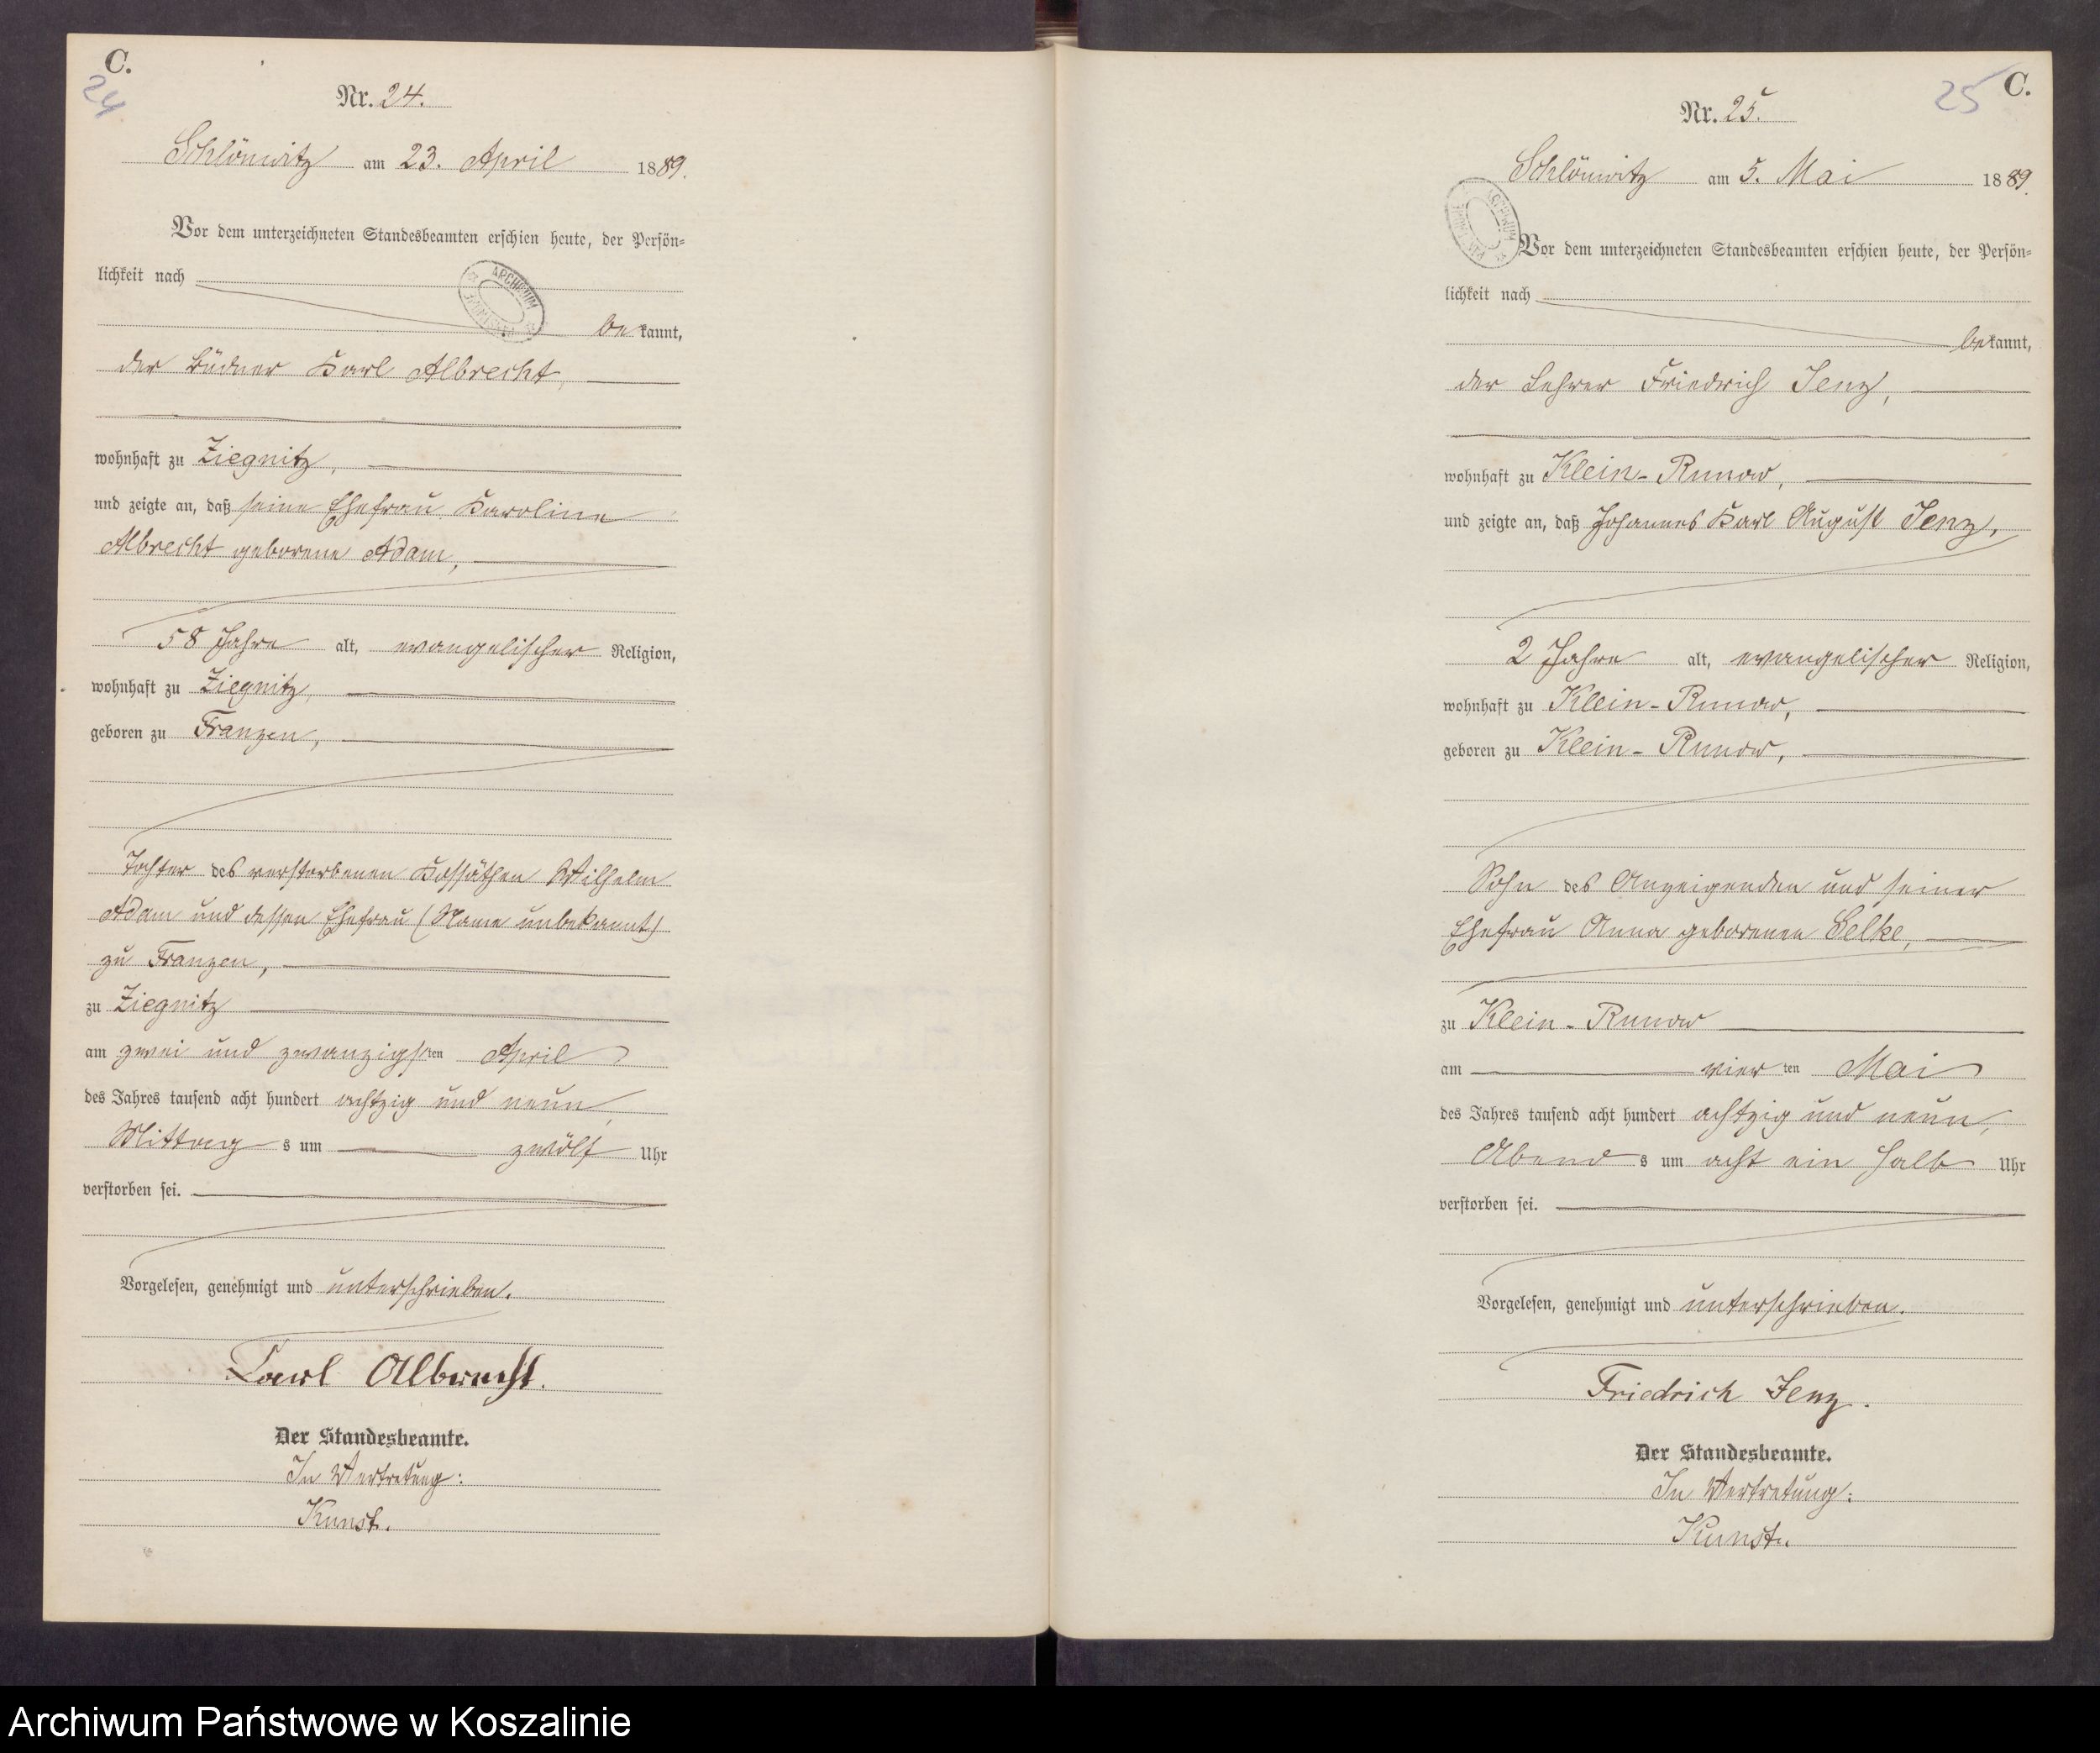 C.
24
Nr. 24.
Schlönwitz am 23. April 1889.
Vor dem unterzeichneten Standesbeamten erschien heute, der Persön-
lichkeit nach
ARCHIWUM
bekannt,
der Büdner Karl Albrecht,
wohnhaft zu Ziegnitz,
und zeigte an, daß seine Ehefrau Karoline
Albrecht geborene Adam,
58 Jahre alt, evangelischer Religion,
wohnhaft zu Ziegnitz,
geboren zu Franzen,
Tochter des verstorbenen Kossäthen Wilhelm
Adam und dessen Ehefrau (Name unbekannt)
zu Franzen,
zu Ziegnitz
am zwei und zwanzigsten April
des Jahres tausend acht hundert achtzig und neun,
Mittags um zwölf Uhr
verstorben sei.
Vorgelesen, genehmigt und unterschrieben.
Carl Albrecht.
Der Standesbeamte.
In Vertretung:
Kunst.
25
C.
Nr. 25.
Schlönwitz am 5. Mai 1889.
ARCHIWUM
Vor dem unterzeichneten Standesbeamten erschien heute, der Persön-
lichkeit nach
bekannt,
der Lehrer Friedrich Jenz,
wohnhaft zu Klein-Runow,
und zeigte an, daß Johannes Karl August Jenz,
2 Jahre alt, evangelischer Religion,
wohnhaft zu Klein-Runow,
geboren zu Klein-Runow,
Sohn des Anzeigenden und seiner
Ehefrau Anna geborenen Selke,
zu Klein-Runow
am vierten Mai
des Jahres tausend acht hundert achtzig und neun,
Abends um acht ein halb Uhr
verstorben sei.
Vorgelesen, genehmigt und unterschrieben.
Friedrich Jenz.
Der Standesbeamte.
In Vertretung:
Kunst.
Archiwum Państwowe w Koszalinie